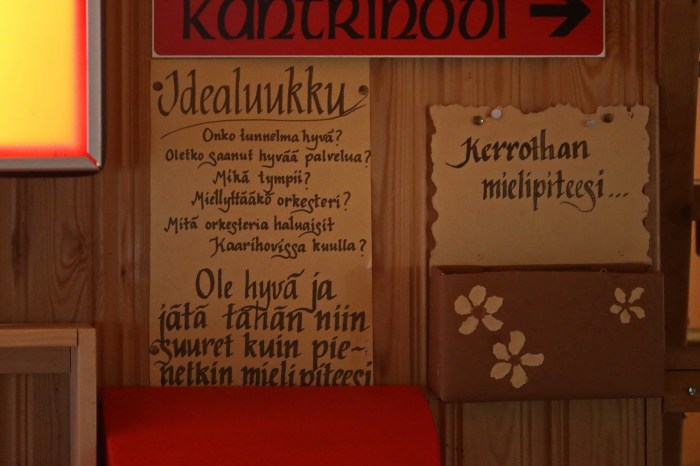 kantrihovi →
Idealuukku
Onko tunnelma hyvä?
Oletko saanut hyvää palvelua?
Mikä tympii?
Miellyttääkö orkesteri?
Mitä orkesteria haluaisit
Kaarihovissa kuulla?
Ole hyvä ja
jätä tähän niin
suuret kuin pie-
netkin mielipiteesi
Kerrothan
mielipiteesi...